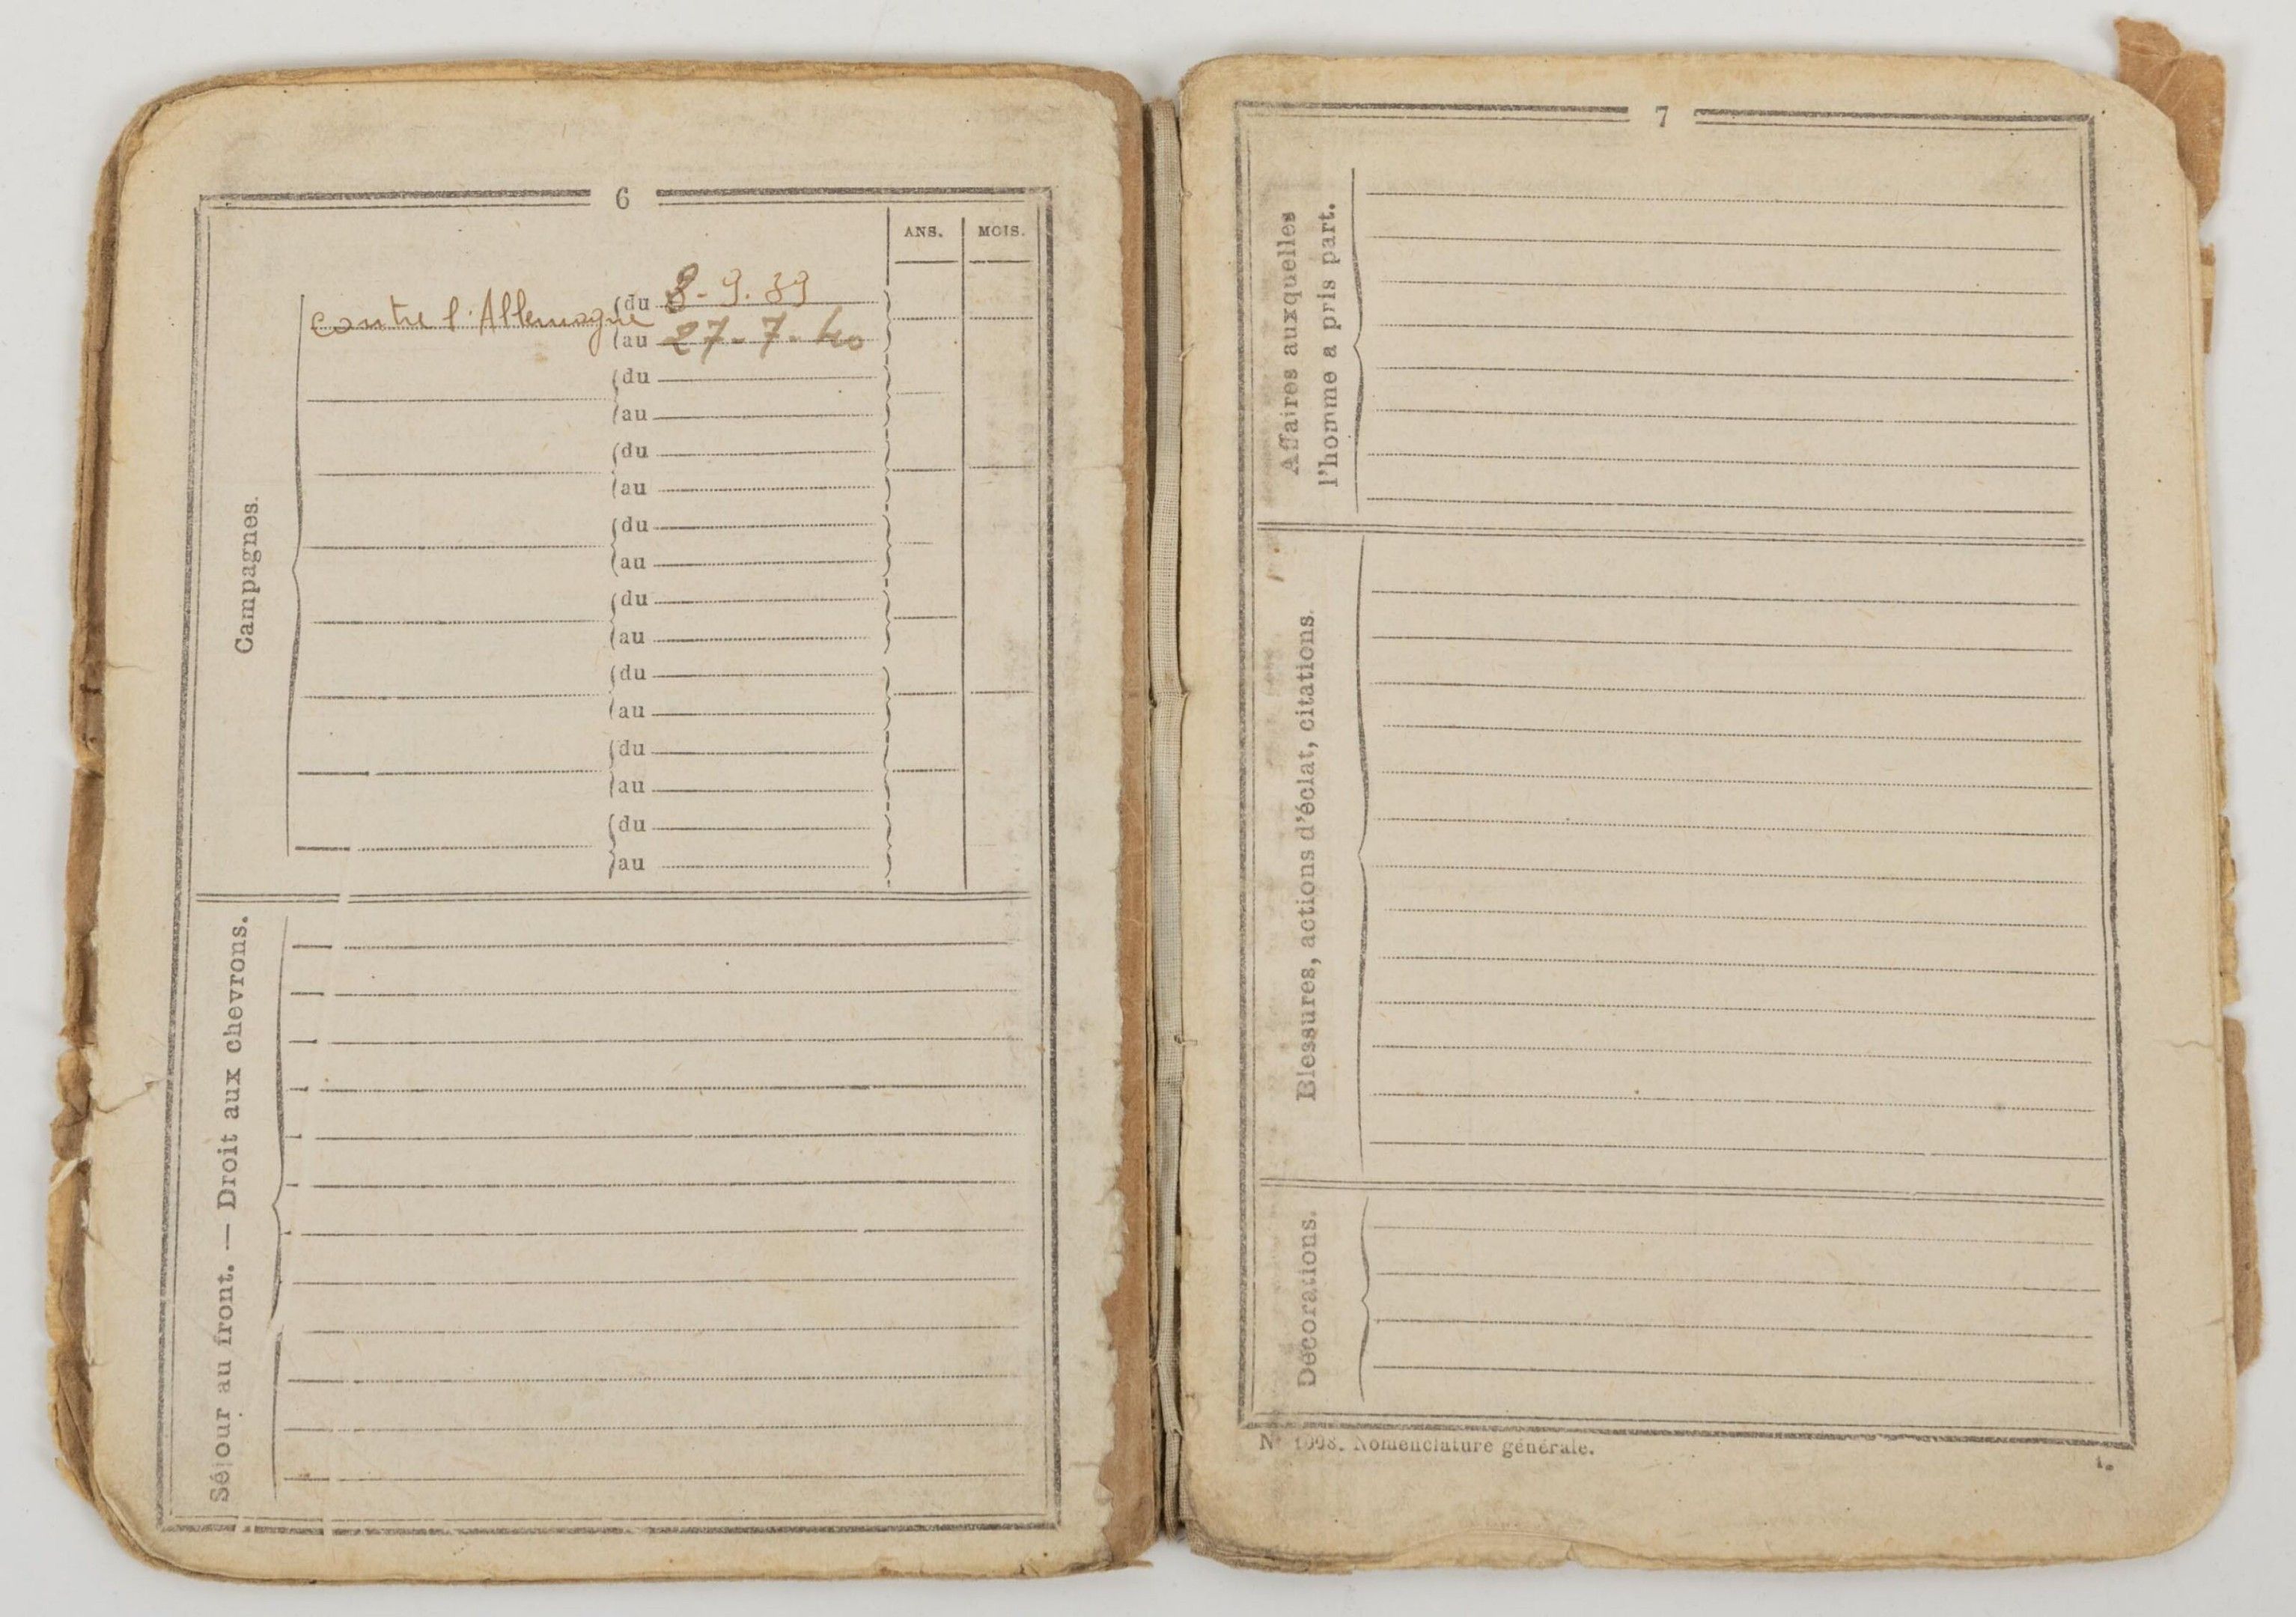 6
ANS. MOIS.
Campagnes.
contre l'Allemagne
du 3-9.39
au 27-7-40
du
au
du
au
du
au
du
au
du
au
du
au
du
au
Séjour au front. — Droit aux chevrons.
7
Affaires auxquelles
l'homme a pris part.
Blessures, actions d'éclat, citations.
Décorations.
N° 1098. Nomenclature générale.
1.